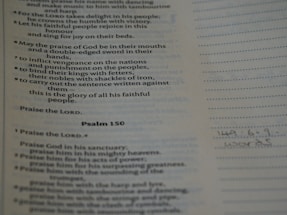 praise his name with dancing
and make music to him with tambourine
and harp.
For the LORD takes delight in his people;
he crowns the humble with victory.
Let his faithful people rejoice in this
honour
and sing for joy on their beds.
May the praise of God be in their mouths
and a double-edged sword in their
hands,
to inflict vengeance on the nations
and punishment on the peoples,
to bind their kings with fetters,
their nobles with shackles of iron,
to carry out the sentence written against
them –
this is the glory of all his faithful
people.
Praise the LORD.
Psalm 150
Praise the LORD.
Praise God in his sanctuary;
praise him in his mighty heavens.
Praise him for his acts of power;
praise him for his surpassing greatness.
Praise him with the sounding of the
trumpet,
praise him with the harp and lyre,
praise him with tambourine and dancing,
praise him with the strings and pipe,
praise him with the clash of cymbals,
praise him with resounding cymbals.
149:6-9